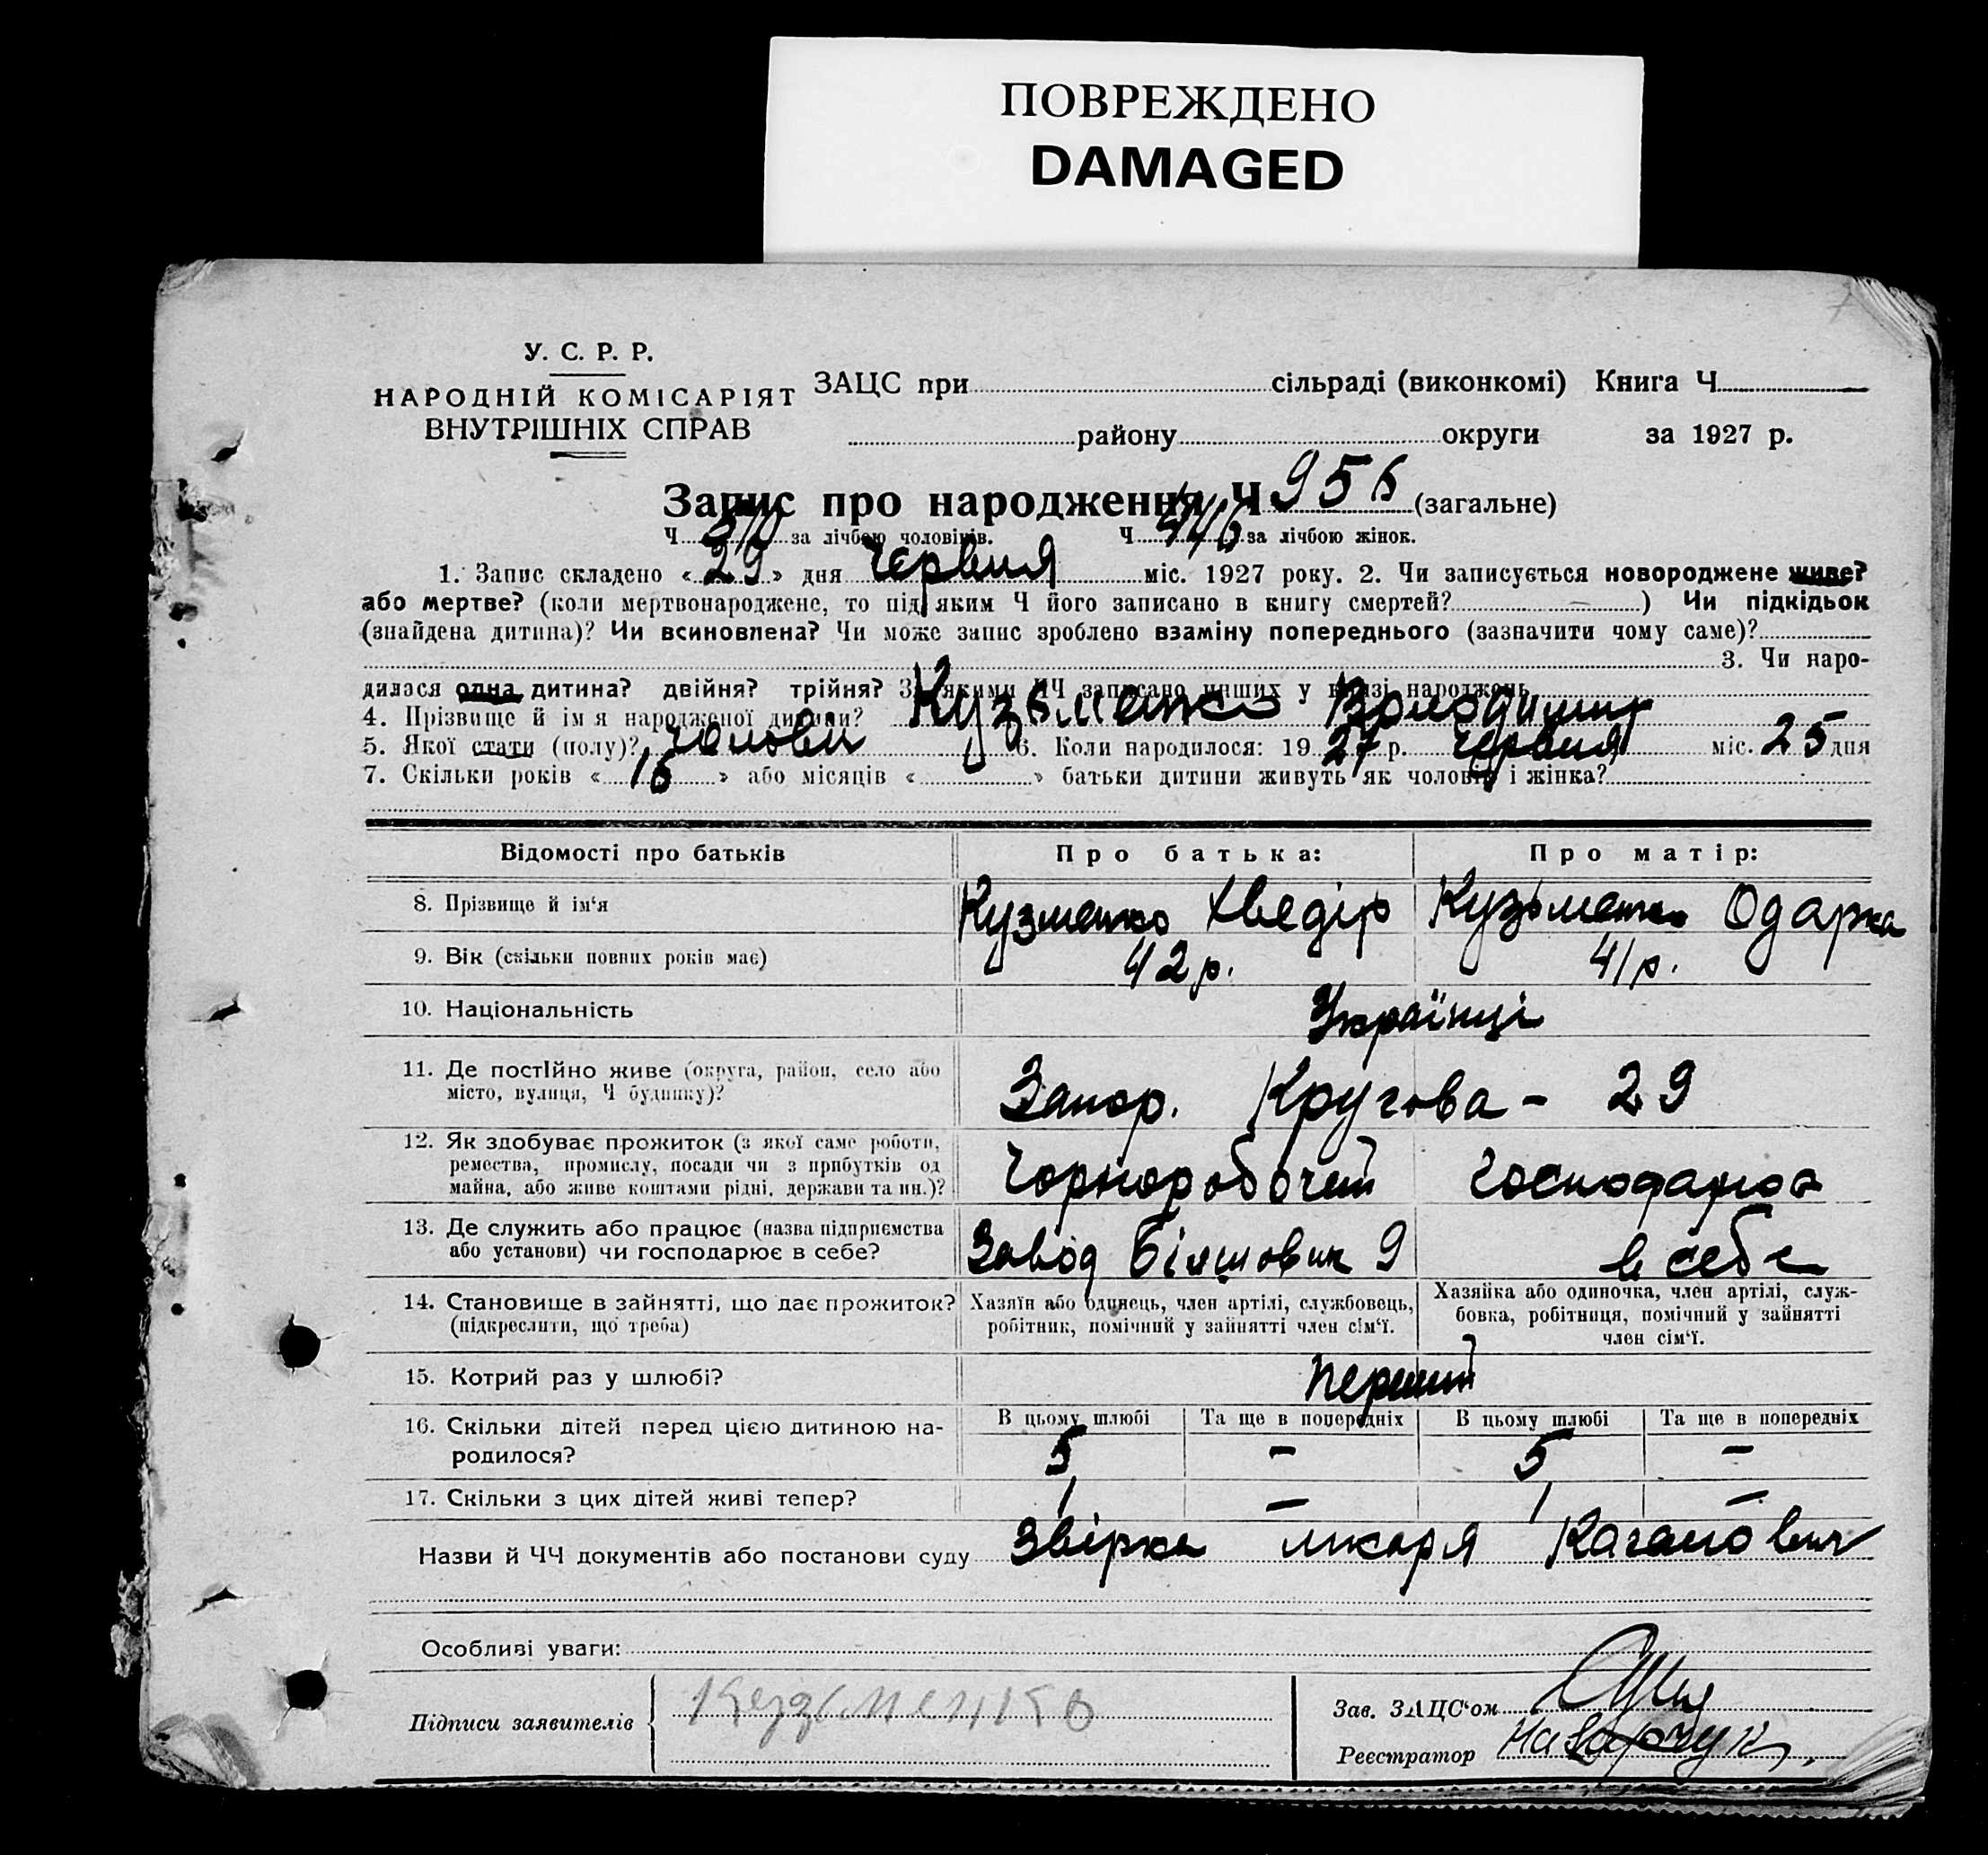 ПОВРЕЖДЕНО
DAMAGED
У. С. Р. Р.
НАРОДНІЙ КОМІСАРІЯТ
ВНУТРІШНІХ СПРАВ
ЗАЦС при сільраді (виконкомі) Книга Ч.
району округи за 1927 р.
Запис про народження Ч. 956 (загальне)
Ч. 510 за лічбою чоловіків. Ч. 446 за лічбою жінок.
1. Запис складено «29» дня Червня міс. 1927 року. 2. Чи записується новороджене живе?
або мертве? (коли мертвонароджене, то під яким Ч його записано в книгу смертей? —) Чи підкідьок
(знайдена дитина)? Чи всиновлена? Чи може запис зроблено взаміну попереднього (зазначити чому саме)?
3. Чи наро-
дилася одна дитина? двійня? трійня? За якими ЧЧ записано инших у книзі народжень
4. Прізвище й ім'я народженої дитини? Кузьменко Володимир
5. Якої стати (полу)? Чолові 6. Коли народилося: 1927 р. Червня міс. 25 дня
7. Скільки років «16» або місяців « » батьки дитини живуть як чоловік і жінка?
Відомості про батьків Про батька: Про матір:
8. Прізвище й ім'я Кузменко Хведір Кузьменко Одарка
9. Вік (скільки повних років має) 42 р. 41 р.
10. Національність Українці
11. Де постІйно живе (округа, район, село або
місто, вулиця, Ч будинку)? Запор. Кругова - 29
12. Як здобуває прожиток (з якої саме роботи,
ремества, промислу, посади чи з прибутків од
майна, або живе коштами рідні, держави та ин.)? Чорноробочий господарює
13. Де служить або працює (назва підприємства
або установи) чи господарює в себе? Завод Більшовик 9 в себе
14. Становище в зайнятті, що дає прожиток?
(підкреслити, що треба)
Хазяїн або одинець, член артілі, службовець,
робітник, помічний у зайнятті член сім'ї.
Хазяйка або одиночка, член артілі, служ-
бовка, робітниця, помічний у зайнятті
член сім'ї.
15. Котрий раз у шлюбі? перший
В цьому шлюбі Та ще в попередніх В цьому шлюбі Та ще в попередніх
16. Скільки дітей перед цією дитиною на-
родилося? 5 — 5 —
17. Скільки з цих дітей живі тепер? 1 — 1 —
Назви й ЧЧ документів або постанови суду Звірка лікаря Каганович
Особливі уваги:
Підписи заявителів Кузьменко
Зав. ЗАЦС'ом
Реєстратор Назарчук